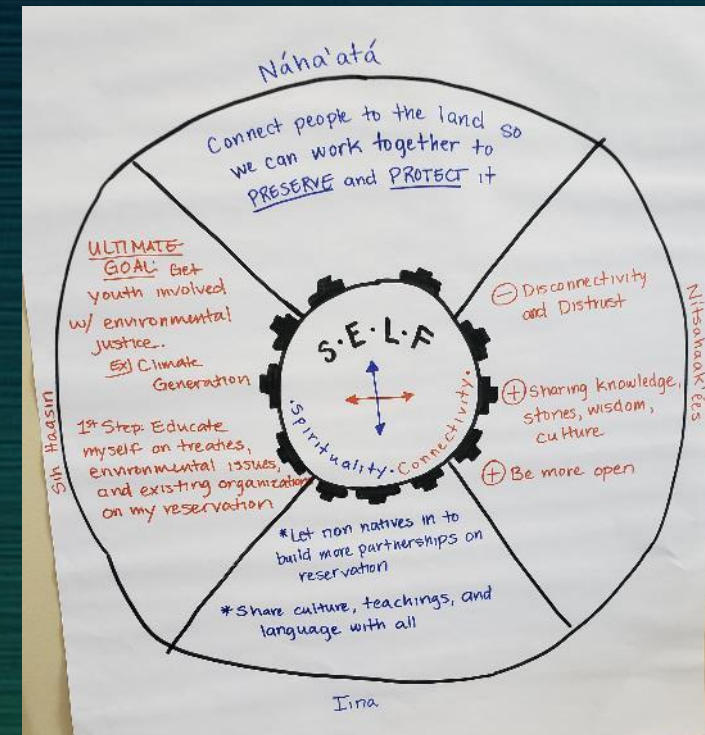 Náha'atá
Connect people to the land so
we can work together to
PRESERVE and PROTECT it
ULTIMATE
GOAL: Get
youth involved
w/ environmental
justice.
Ex) Climate
Generation
1st Step: Educate
myself on treaties,
environmental issues,
and existing organizations
on my reservation
Sih Haasin
S·E·L·F
·Spirituality·Connectivity·
- Disconnectivity
and Distrust
+ Sharing knowledge,
stories, wisdom,
culture
+ Be more open
Nitsahaak'ees
*Let non natives in to
build more partnerships on
reservation
*Share culture, teachings, and
language with all
Iina